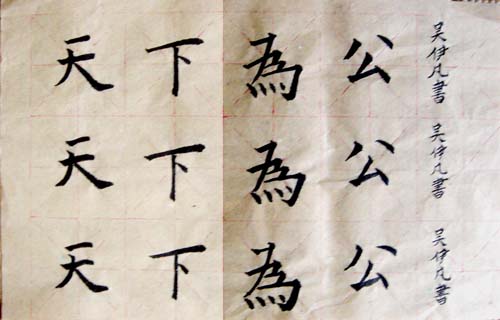 天下為公
吴伊凡書
天下為公
吴伊凡書
天下為公
吴伊凡書